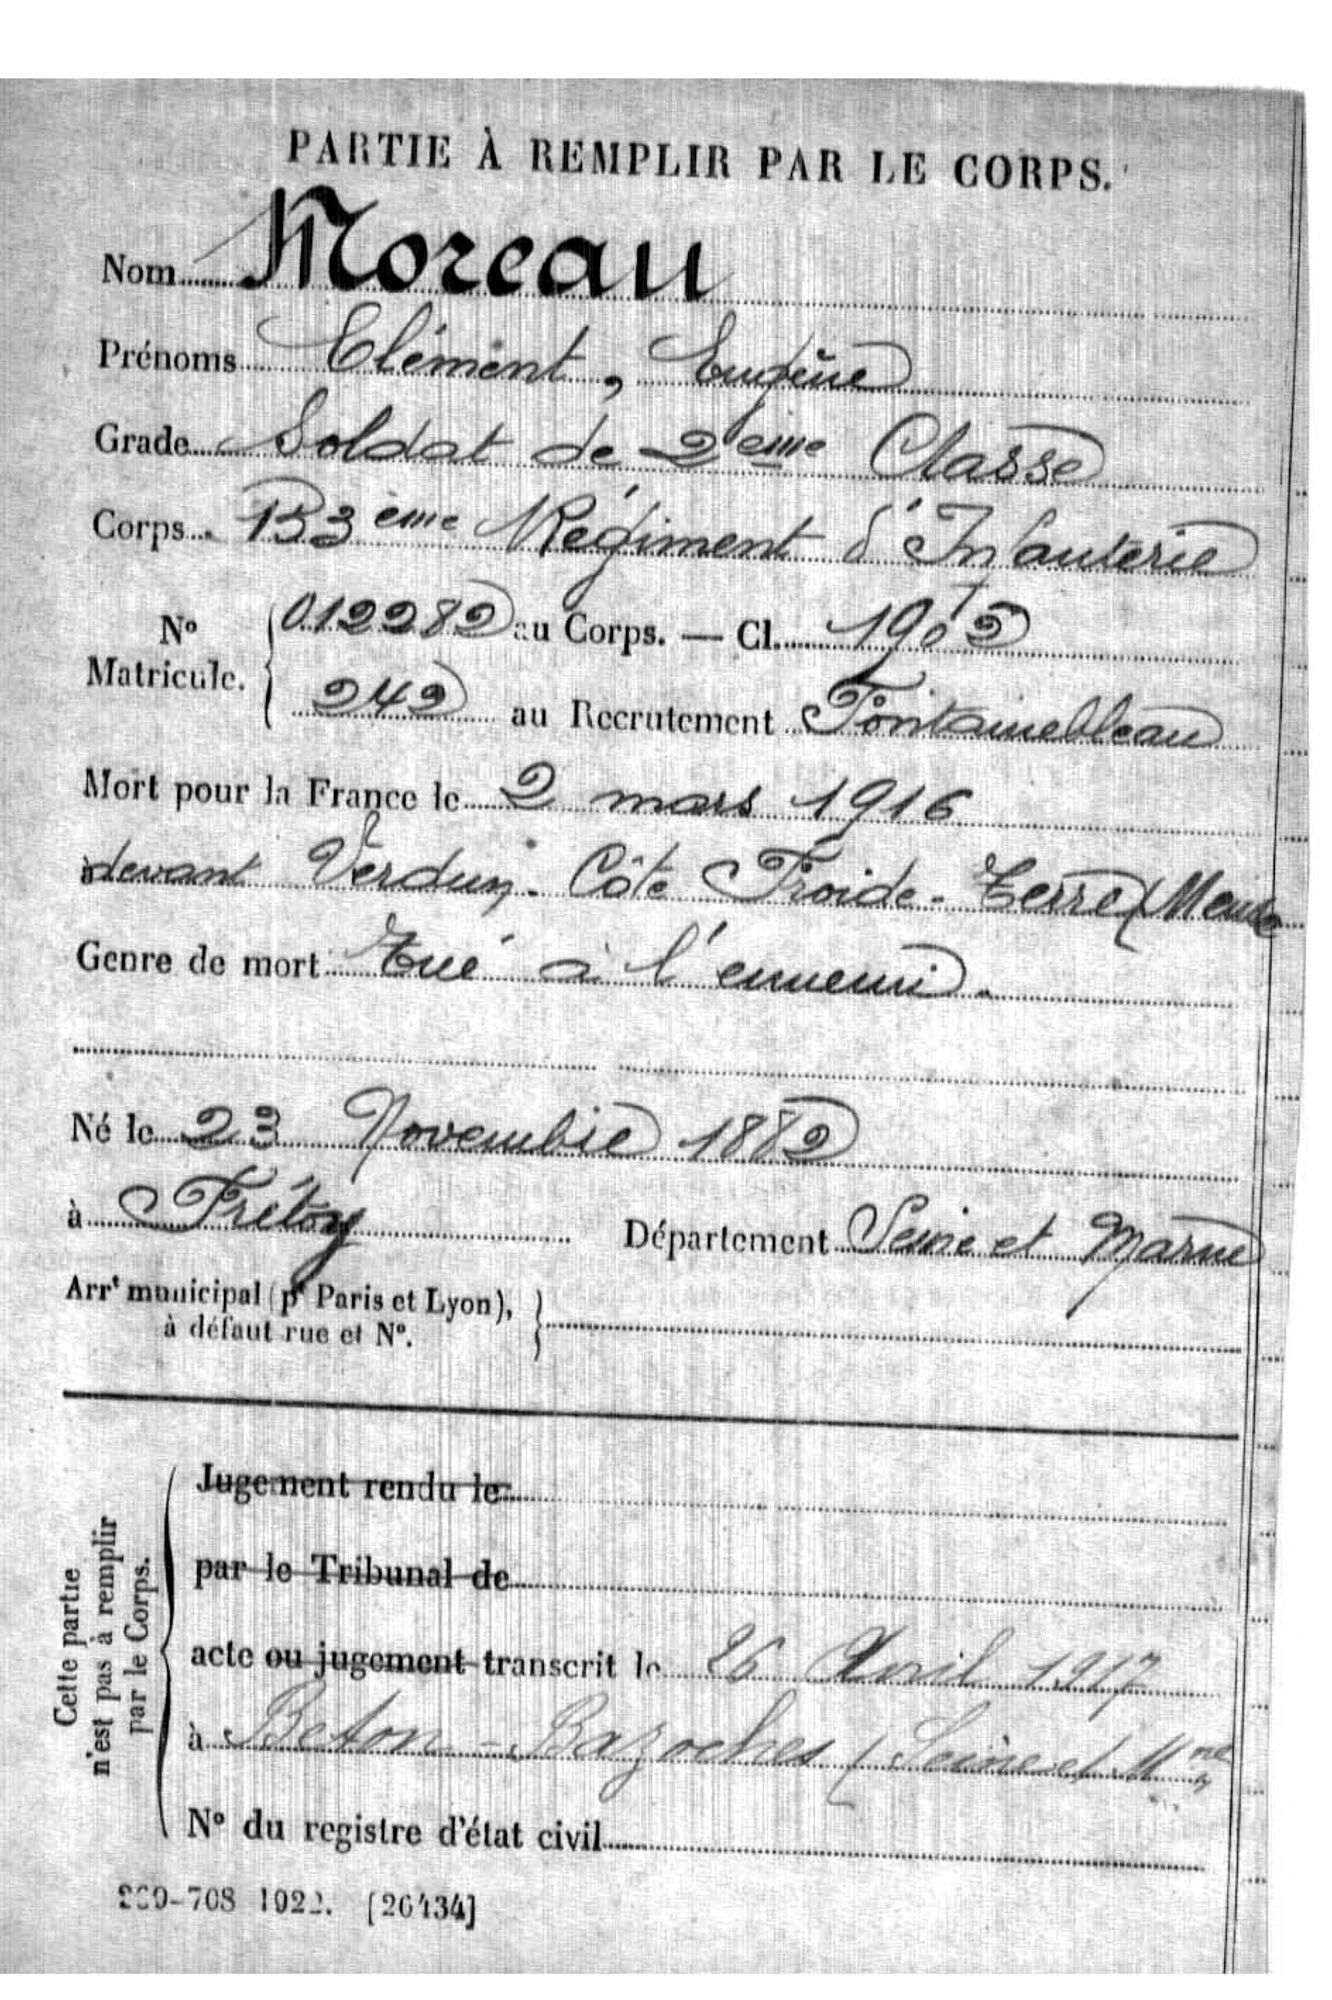 PARTIE À REMPLIR PAR LE CORPS.
Nom Moreau
Prénoms Clément, Eugène
Grade Soldat de 2ème Classe
Corps ème Régiment d'Infanterie
N° Matricule. 012282 au Corps. — Cl. 1902
242 au Recrutement Fontainebleau
Mort pour la France le 2 mars 1916
devant Verdun. Côte Froide-Terre (Meuse
Genre de mort Tué à l'ennemi.
Né le 23 Novembre 1882
à Frétoy Département Seine et Marne
Arrt municipal (pr Paris et Lyon),
à défaut rue et N°.
Cette partie
n'est pas à remplir
par le Corps.
Jugement rendu le
par le Tribunal de
acte ou jugement transcrit le 26 Avril 1917
à Beton-Bazoches (Seine et Mne)
N° du registre d'état civil
-708 1922. [26434]